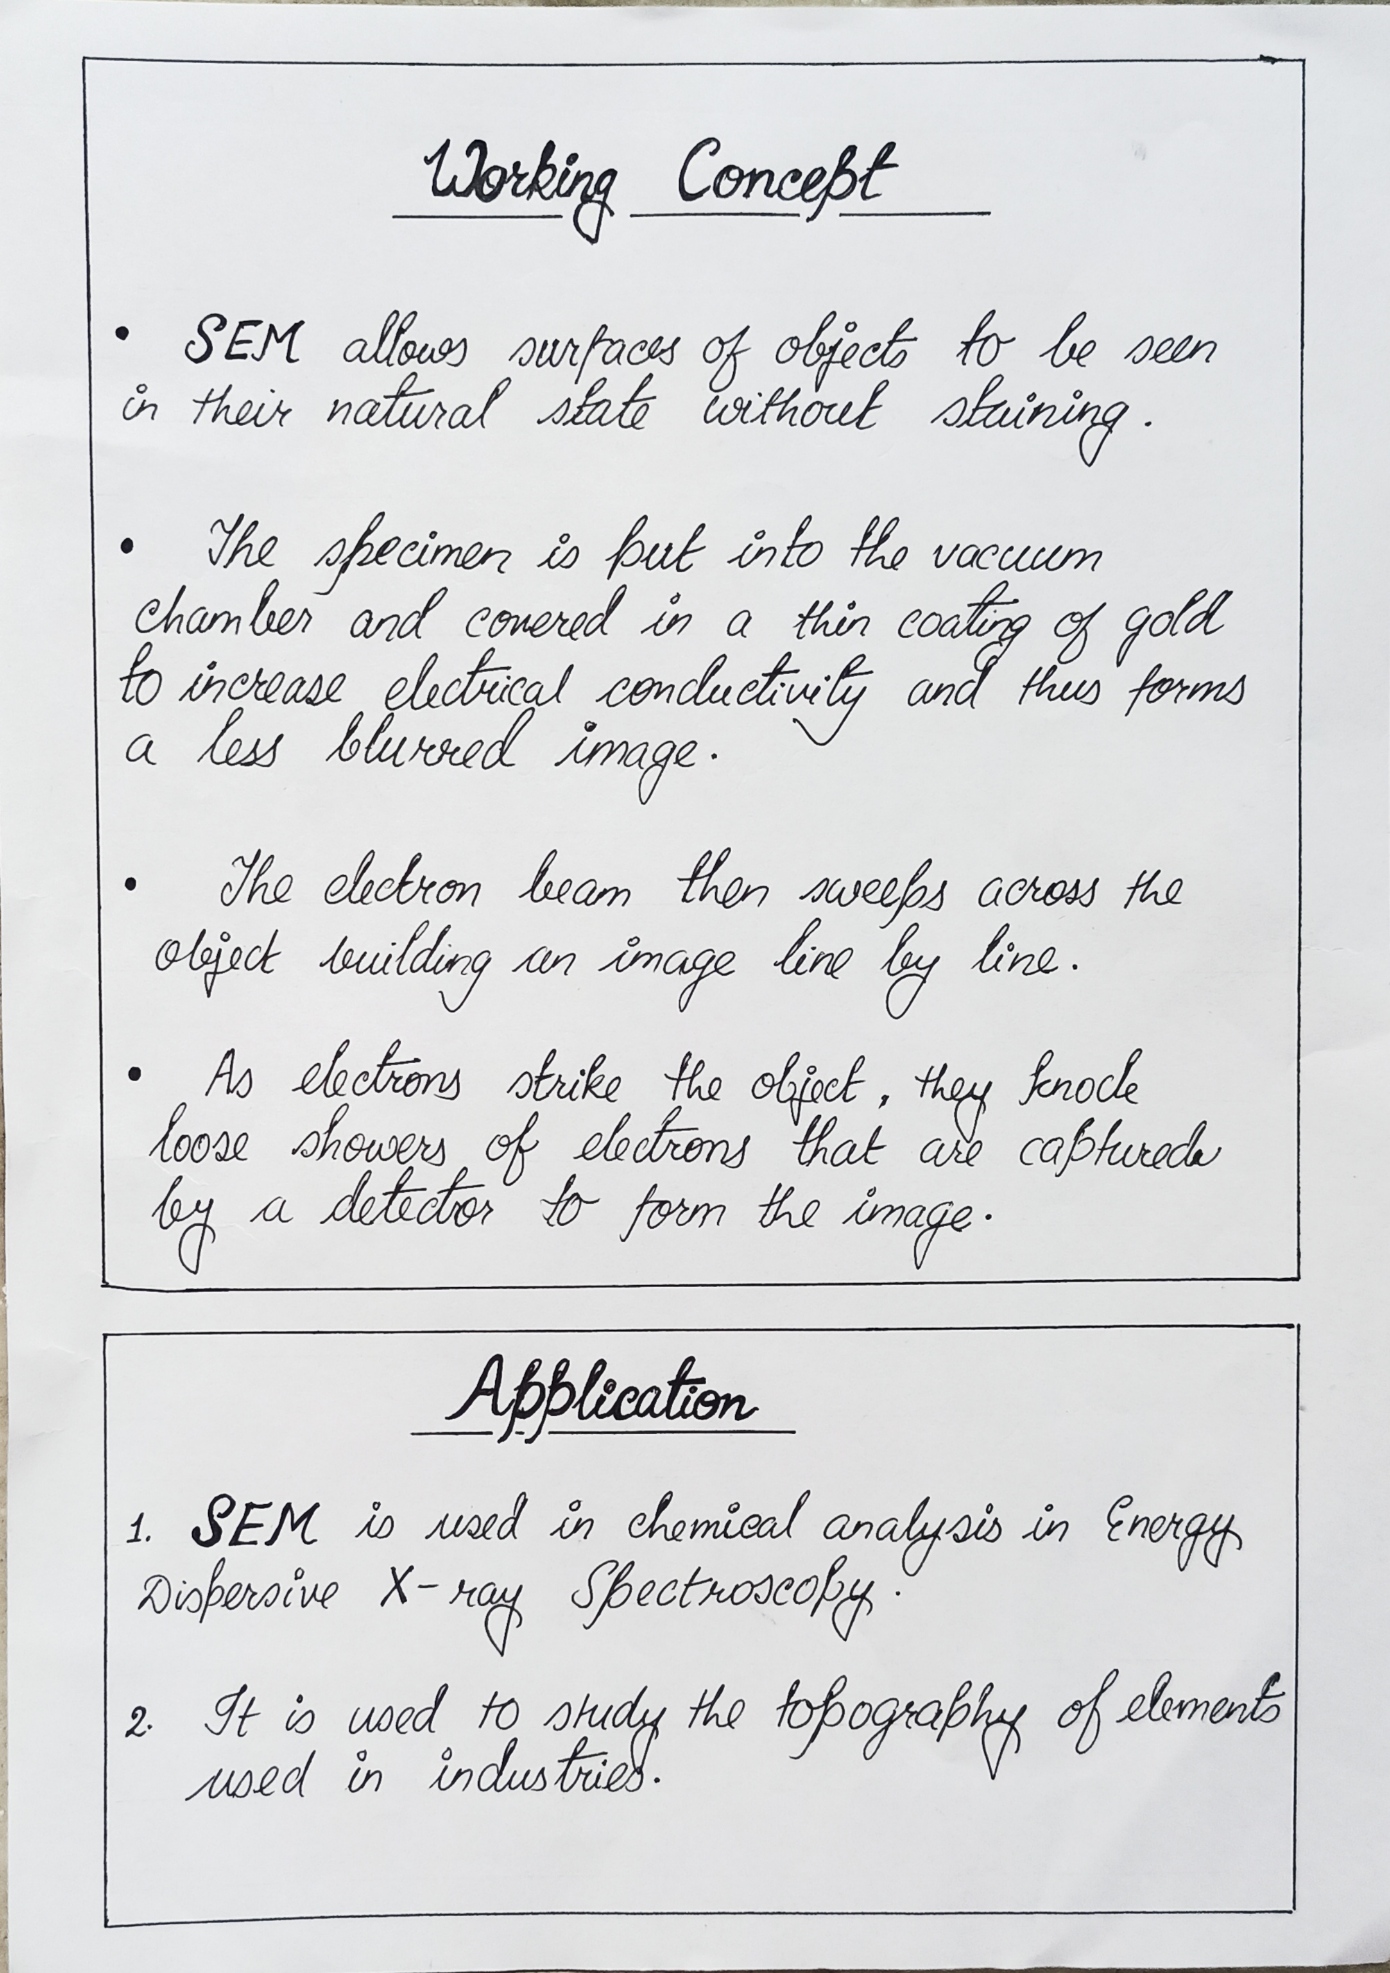 Working Concept
• SEM allows surfaces of objects to be seen
in their natural state without staining.
• The specimen is put into the vacuum
chamber and covered in a thin coating of gold
to increase electrical conductivity and thus forms
a less blurred image.
• The electron beam then sweeps across the
object building an image line by line.
• As electrons strike the object, they knock
loose showers of electrons that are captured
by a detector to form the image.
Application
1. SEM is used in chemical analysis in Energy
Dispersive X-ray Spectroscopy.
2. It is used to study the topography of elements
used in industries.